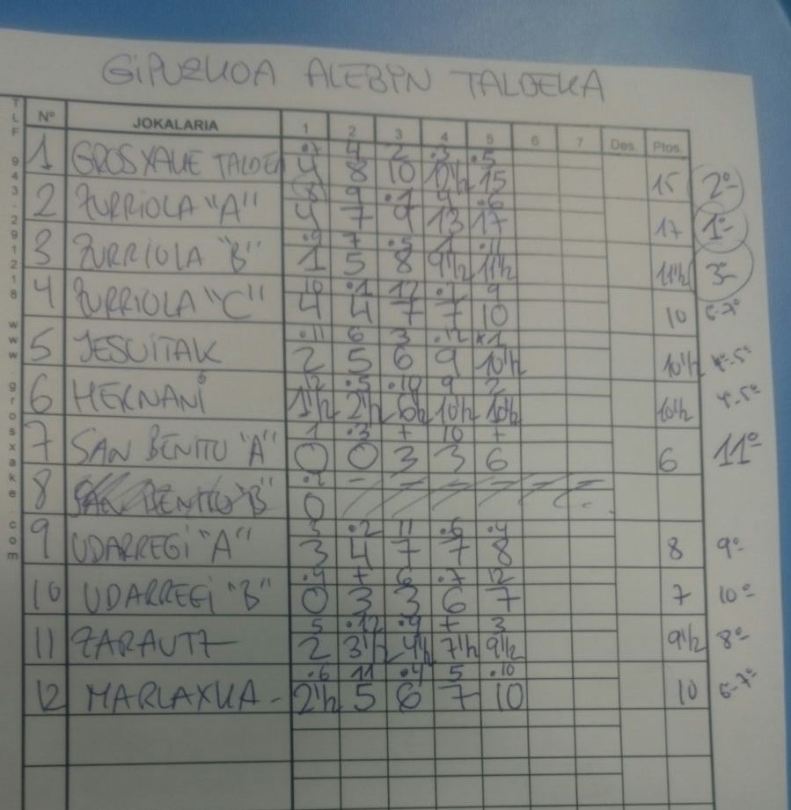 GIPUZKOA ALEBIN TALDEKA
Nº JOKALARIA 1 2 3 4 5 6 7 Des. Ptos.
·7 4 2 ·3 ·5
1 GROSXAKE TALDEA 4 8 10 12½ 15 15 2º
8 9 ·1 4 ·6
2 ZURRIOLA "A" 4 7 9 13 17 17 1º
·9 7 ·5 1 ·11
3 ZURRIOLA "B" 1 5 8 9½ 11½ 11½ 3º
10 ·1 12 ·7 9
4 ZURRIOLA "C" 4 4 7 7 10 10 6-7º
·11 6 3 ·12 ·1
5 JESUITAK 2 5 6 9 10½ 10½ 4º-5º
12 ·5 ·10 9 2
6 HERNANI 1½ 2½ 6½ 10½ 10½ 10½ 4-5º
1 ·3 + 10 +
7 SAN BENITO "A" 0 0 3 3 6 6 11º
·2 -
8 SAN BENITO "B" 0
3 ·2 11 ·6 ·4
9 UDARREGI "A" 3 4 7 7 8 8 9º
·4 + 6 ·7 12
10 UDARREGI "B" 0 3 3 6 7 7 10º
5 ·12 ·9 + 3
11 ZARAUTZ 2 3½ 4½ 7½ 9½ 9½ 8º
·6 11 ·4 5 ·10
12 MARLAXKA - 2½ 5 6 7 10 10 6-7º
TLF 943-291218 www.grosxake.com